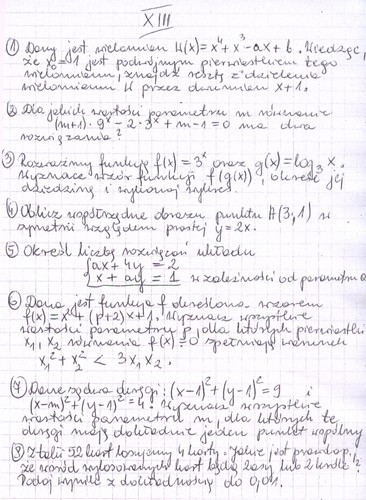 XIII
① Dany jest wielomian W(x) = x⁴ + x³ - ax + b. Wiedząc,
że x₀ = 1 jest podwójnym pierwiastkiem tego
wielomianu, znajdź resztę z dzielenia
wielomianu W przez dwumian x+1.
② Dla jakich wartości parametru m równanie
(m+1)·9ˣ - 2·3ˣ + m - 1 = 0 ma dwa
rozwiązania?
③ Rozważmy funkcje f(x) = 3ˣ oraz g(x) = log₃ x.
Wyznacz wzór funkcji f(g(x)), określ jej
dziedzinę i wykonaj wykres.
④ Oblicz współrzędne obrazu punktu A(3,1) w
symetrii względem prostej y = 2x.
⑤ Określ liczbę rozwiązań układu
{ ax + 4y = 2
x + ay = 1 w zależności od parametru a
⑥ Dana jest funkcja f określona wzorem
f(x) = x² + (p+2)x + 1. Wyznacz wszystkie
wartości parametru p, dla których pierwiastki
x₁, x₂ równania f(x) = 0 spełniają warunek
x₁² + x₂² < 3x₁x₂.
⑦ Dane są dwa okręgi: (x-1)² + (y-1)² = 9 i
(x-m)² + (y-1)² = 4. Wyznacz wszystkie
wartości parametru m, dla których te
okręgi mają dokładnie jeden punkt wspólny
⑧ Z talii 52 kart losujemy 4 karty. Jakie jest prawdop.,
że wśród wylosowanych kart będą 2 asy lub 2 króle?
Podaj wynik z dokładnością do 0,01.